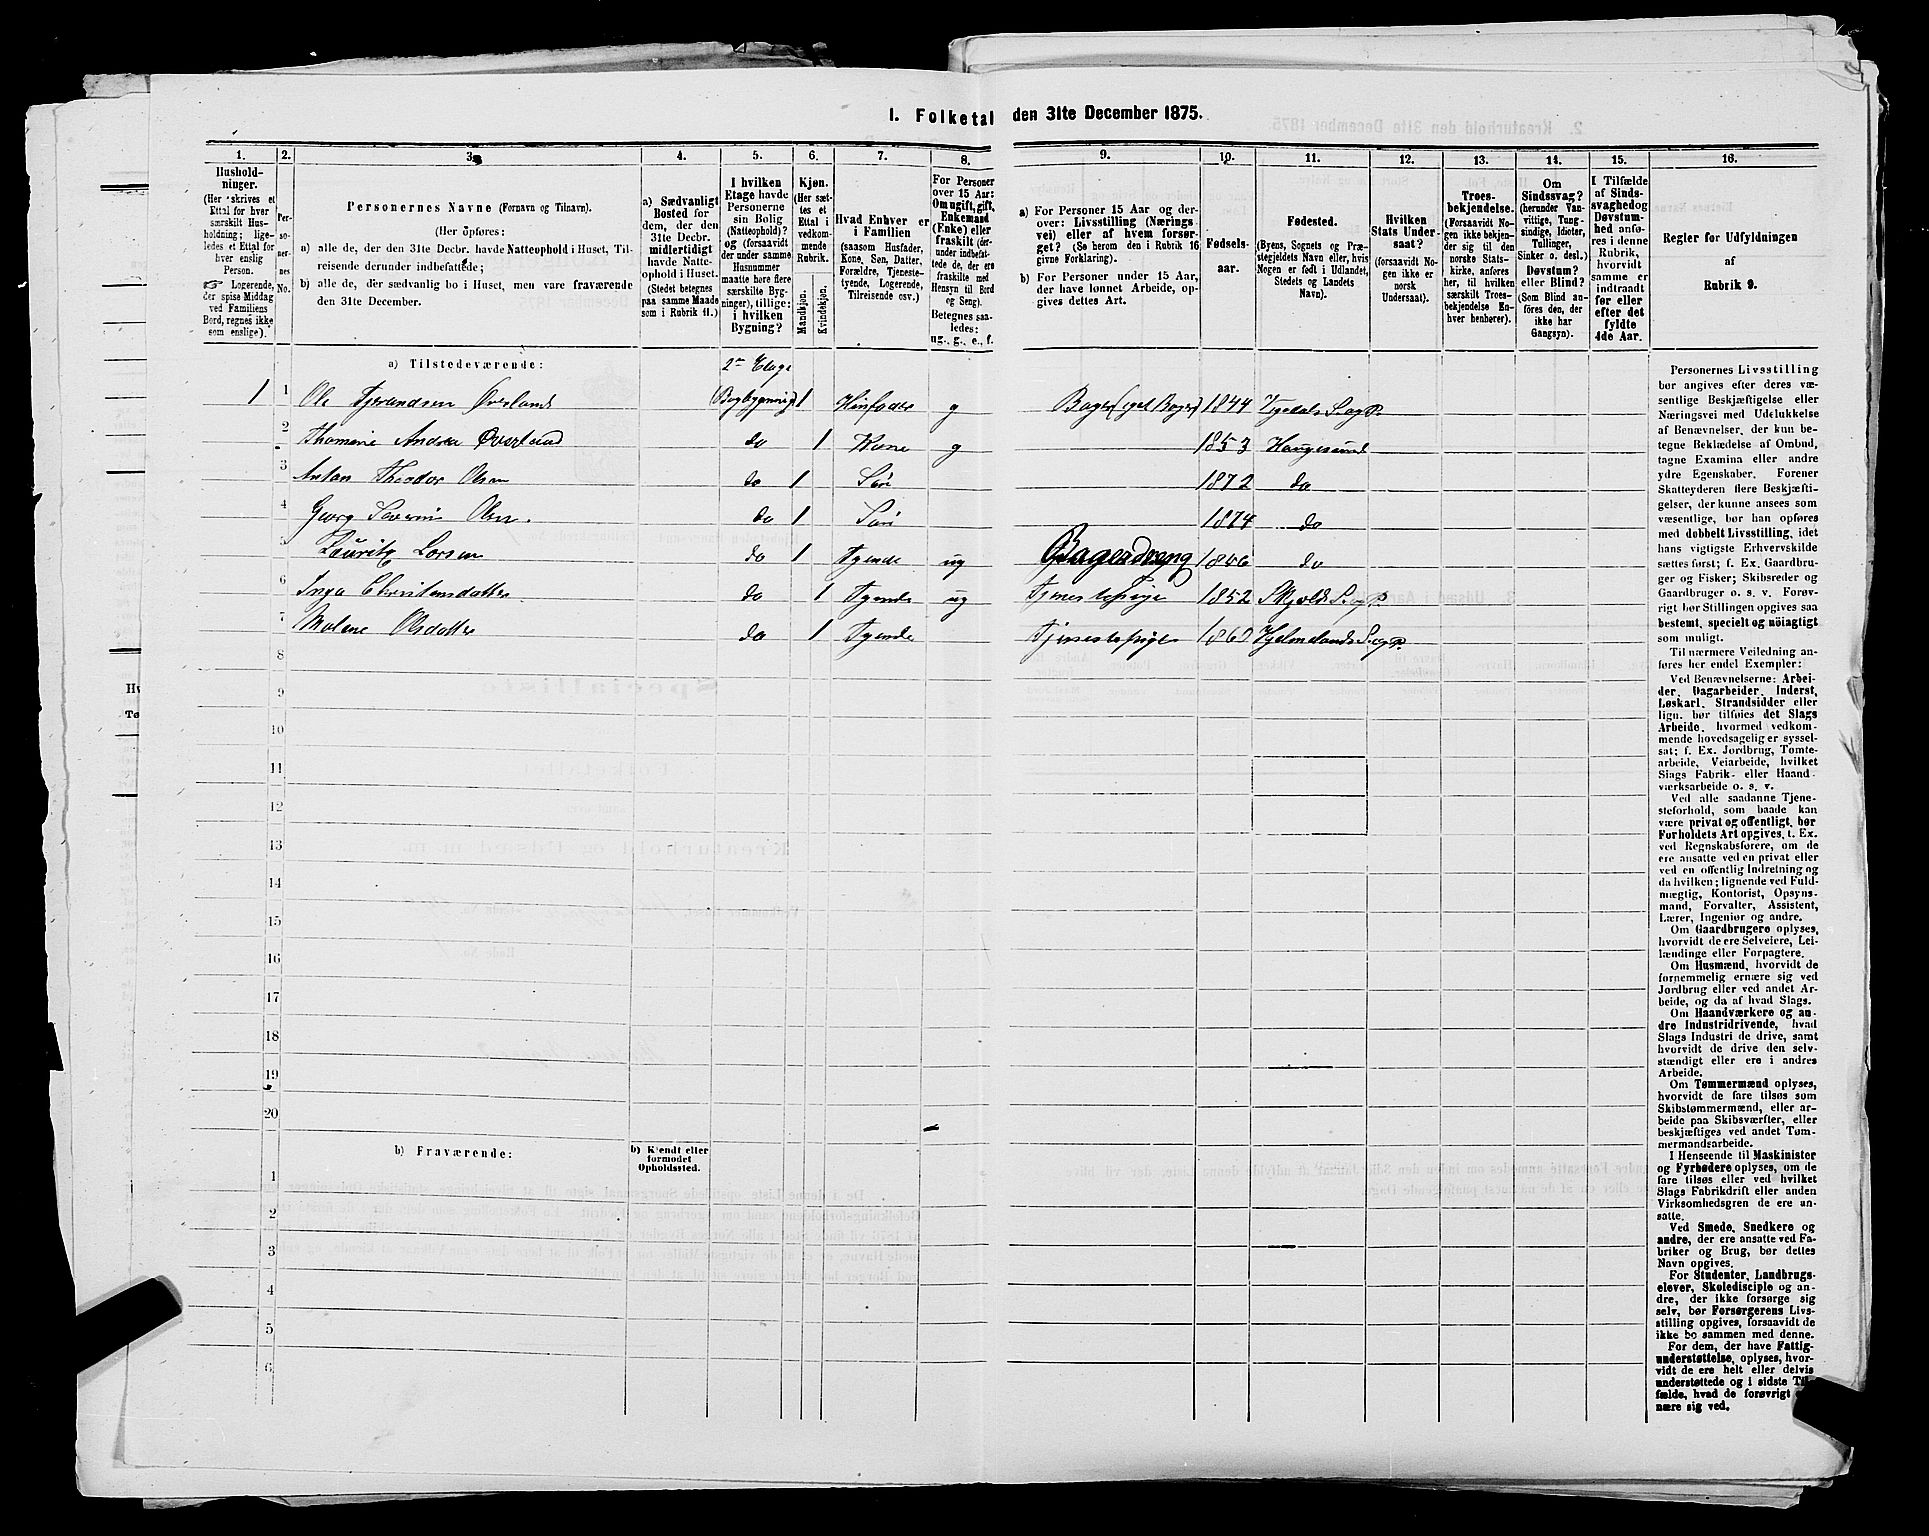 1. Folketal den 31te December 1875.
1. 2. 3. 4. 5. 6. 7. 8. 9. 10. 11. 12. 13. 14. 15. 16.
Hushold-
ninger.
(Her skrives et
Ettal for hver
særskilt Hus-
holdning; lige-
ledes et Ettal for
hver enslig
Person.
Logerende,
der spise Middag
ved Familiens
Bord, regnes ikke
som enslige).
Per-
so-
ner-
nes
No.
Personernes Navne (Fornavn og Tilnavn).
(Her opføres:
a) alle de, der den 31te Decbr. havde Natteophold i Huset, Til-
reisende derunder indbefattede;
b) alle de, der sædvanlig bo i Huset, men vare fraværende
den 31te December.
a) Sædvanligt
Bosted for
dem, der den
31te Decbr.
midlertidigt
havde Natte-
ophold i Huset.
(Stedet betegnes
paa samme Maade
som i Rubrik 11.)
I hvilken
Etage havde
Personerne
sin Bolig
(Natteophold)?
og (forsaavidt
der under samme
Husnummer
maatte høre flere
særskilte Byg-
ninger), tillige:
i hvilken
Bygning?
Kjøn.
(Her sæt-
tes et
Ettal i
vedkom-
mende
Rubrik.
Mandkjøn.
Kvindekjøn.
Hvad Enhver er
i Familien
(saasom Husfader,
Kone, Søn, Datter,
Forældre, Tjeneste-
tyende, Logerende,
Tilreisende osv.)
For Personer
over 15 Aar:
Om ugift, gift,
Enkemand
(Enke) eller
fraskilt (der-
under indbefat-
tede de, der ere
fraskilte med
Hensyn til Bord
og Seng).
Betegnes saa-
ledes:
ug., g., e., f.
a) For Personer 15 Aar og der-
over: Livsstilling (Nærings-
vei) eller af hvem forsør-
get? (Se herom den i Rubrik 16
givne Forklaring).
b) For Personer under 15 Aar,
der have lønnet Arbeide, op-
gives dettes Art.
Fødsels-
aar.
Fødested.
(Byens, Sognets og Præ-
stegjeldets Navn eller, hvis
Nogen er født i Udlandet,
Stedets og Landets
Navn).
Hvilken
Stats Under-
saat?
(forsaavidt No-
gen ikke er
norsk
Undersaat).
Troes-
bekjendelse.
(Forsaavidt No-
gen ikke bekjen-
der sig til den
norske Stats-
kirke, anføres
her, til hvilken
særskilt Troes-
bekjendelse En-
hver henhører).
Om
Sindssvag?
(herunder Van-
vittige, Tung-
sindige, Idioter,
Tullinger,
Sinker o. desl.)
Døvstum?
eller Blind?
(Som Blind an-
føres den, der
ikke har
Gangsyn).
I Tilfælde
af Sinds-
svaghed og
Døvstum-
hed anfø-
res i denne
Rubrik,
hvorvidt
samme er
indtraadt
før eller
efter det
fyldte
4de Aar.
Regler for Udfyldningen
af
Rubrik 9.
a) Tilstedeværende: 2en Etage
1 1 Ole Tjerandsen Øverland Bagbygning 1 Husfader g Bager (eget Bageri) 1844 S. og P.
2 Thomine Andrea Øverland do 1 Kone g 1853 Haugesund
3 Anton Theodor Olsen do 1 Søn 1872 do
4 Georg Severin Olsen. do 1 Søn 1874 do
5 Lauritz Larsen do 1 Tyende ug Bagerdreng 1856 do
6 Inga Christensdatter do 1 Tyende ug Tjenestepige 1852 Skjold S. og P.
7 Malene Olsdatter do 1 Tyende Tjenestepige 1860 Hjelmelands S. og P.
8
9
10
11
12
13
14
15
16
17
18
19
20
b) Fraværende: b) Kjendt eller
formodet
Opholdssted.
1
2
3
4
5
6
Personernes Livsstilling
bør angives efter deres væ-
sentlige Beskjæftigelse eller
Næringsvei med Udelukkelse
af Benævnelser, der kun be-
tegne Beklædelse af Ombud,
tagne Examina eller andre
ydre Egenskaber. Forener
Skatteyderen flere Beskjæfti-
gelser, der kunne ansees som
væsentlige, bør han opføres
med dobbelt Livsstilling, idet
hans vigtigste Erhvervskilde
sættes først; f. Ex. Gaardbru-
ger og Fisker; Skibsreder og
Gaardbruger o. s. v. Forøv-
rigt bør Stillingen opgives saa
bestemt, specielt og nöiagtigt
som muligt.
Til nærmere Veiledning an-
føres her endel Exempler:
Ved Benævnelserne: Arbei-
der, Dagarbeider, Inderst,
Løskarl, Strandsidder eller
lign. bør tilføies det Slags
Arbeide, hvormed vedkom-
mende hovedsagelig er syssel-
sat; f. Ex. Jordbrug, Tomte-
arbeide, Veiarbeide, hvilket
Slags Fabrik- eller Haand-
værksarbeide o. s. v.
Ved alle saadanne Tjene-
steforhold, som baade kan
være privat og offentligt, bør
Forholdets Art opgives, t. Ex.
ved Regnskabsførere, om de
ere ansatte ved en privat eller
ved en offentlig Indretning og
da hvilken; lignende ved Fuld-
mægtig, Kontorist, Opsyns-
mand, Forvalter, Assistent,
Lærer, Ingeniør og andre.
Om Gaardbrugere oplyses,
hvorvidt de ere Selveiere, Lei-
lændinge eller Forpagtere.
Om Husmænd, hvorvidt de
fornemmelig ernære sig ved
Jordbrug eller ved andet Ar-
beide, og da af hvad Slags.
Om Haandværkere og an-
dre Industridrivende, hvad
Slags Industri de drive, samt
hvorvidt de drive den selv-
stændigt eller ere i andres
Arbeide.
Om Tømmermænd oplyses,
hvorvidt de fare tilsøs som
Skibstømmermænd, eller ar-
beide paa Skibsværfter, eller
beskjæftiges ved andet Tøm-
mermandsarbeide.
I Henseende til Maskinister
og Fyrbødere oplyses, om de
fare tilsøs eller ved hvilket
Slags Fabrikdrift eller anden
Virksomhedsgren de ere an-
satte.
Ved Smede, Snedkere og
andre, der ere ansatte ved Fa-
briker og Brug, bør dettes
Navn opgives.
For Studenter, Landbrugs-
elever, Skoledisciple og an-
dre, der ikke forsørge sig
selv, bør Forsørgerens Livs-
stilling opgives, forsaavidt de
ikke bo sammen med denne.
For dem, der have Fattig-
understøttelse, oplyses, hvor-
vidt de ere helt eller delvis
understøttede og i sidste Til-
fælde, hvad de forøvrigt
nære sig ved.